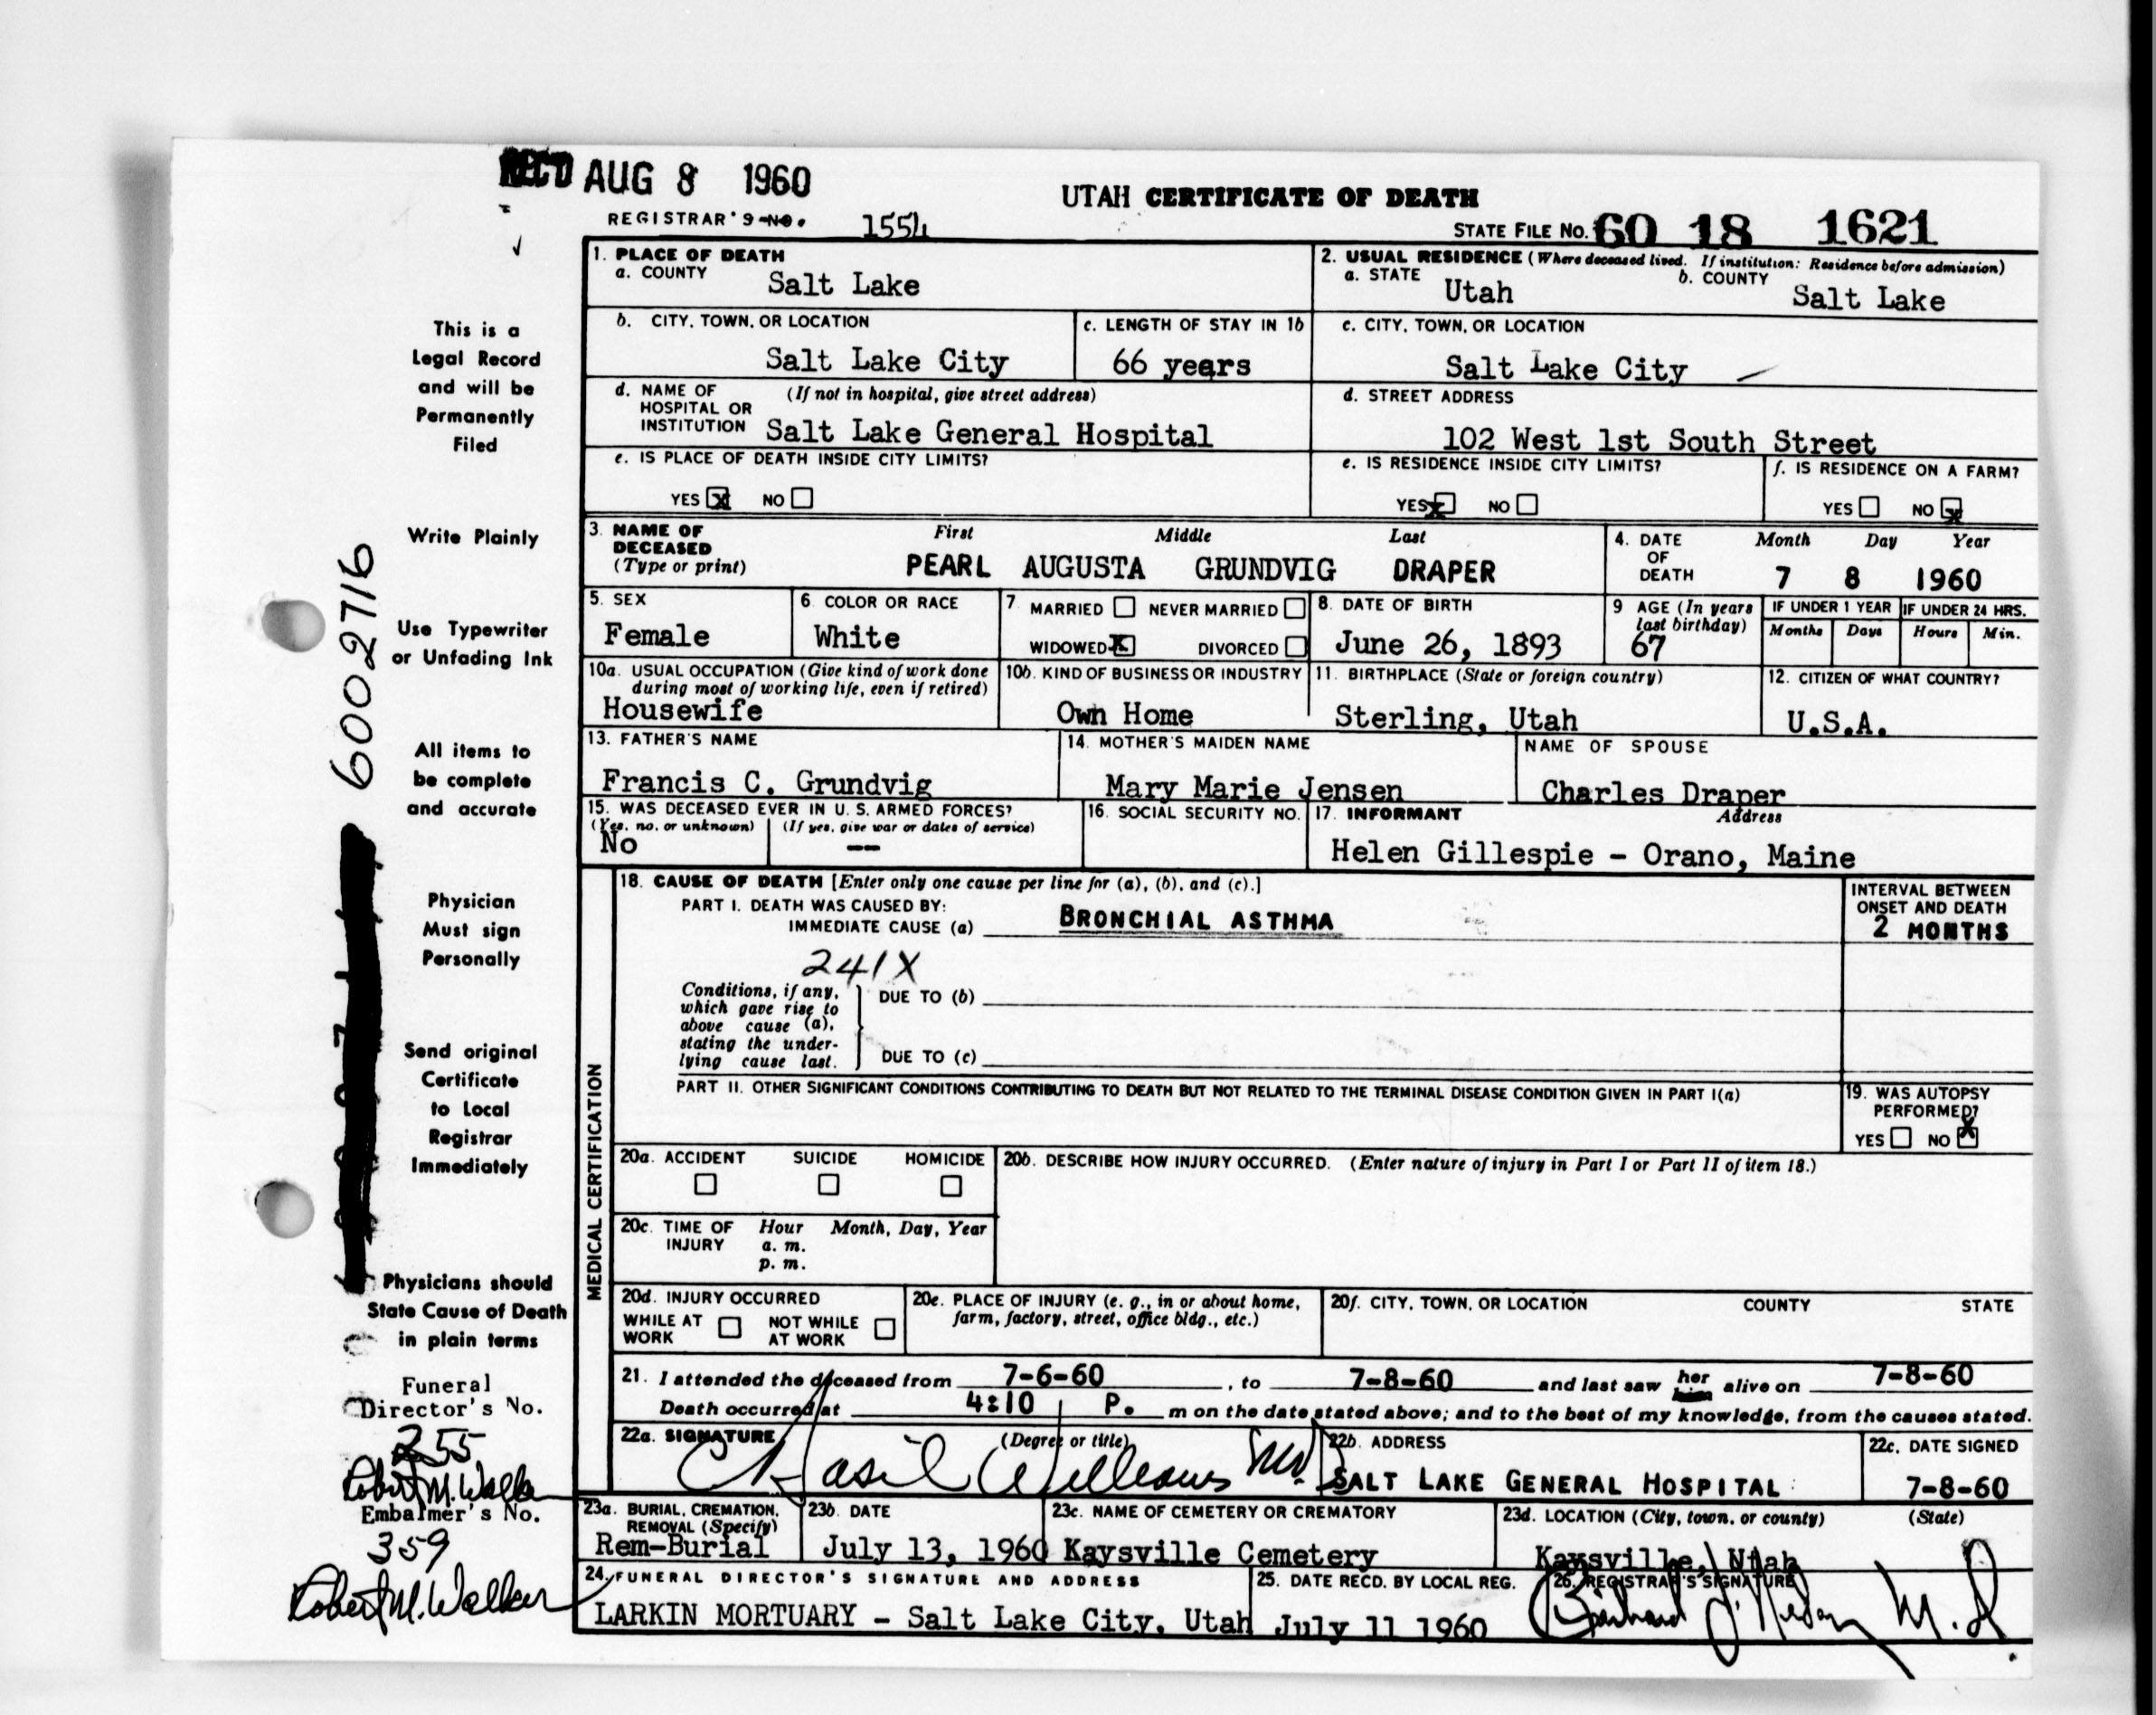 REC'D AUG 8 1960
UTAH CERTIFICATE OF DEATH
REGISTRAR'S NO. 1554
STATE FILE NO. 60 18 1621
1. PLACE OF DEATH
a. COUNTY Salt Lake
2. USUAL RESIDENCE (Where deceased lived. If institution: Residence before admission)
a. STATE Utah b. COUNTY Salt Lake
b. CITY, TOWN, OR LOCATION Salt Lake City
c. LENGTH OF STAY IN 1b 66 years
c. CITY, TOWN, OR LOCATION Salt Lake City
d. NAME OF HOSPITAL OR INSTITUTION (If not in hospital, give street address) Salt Lake General Hospital
d. STREET ADDRESS 102 West 1st South Street
e. IS PLACE OF DEATH INSIDE CITY LIMITS?
YES X NO
e. IS RESIDENCE INSIDE CITY LIMITS?
YES X NO
f. IS RESIDENCE ON A FARM?
YES NO X
3. NAME OF DECEASED (Type or print)
First Middle Last
PEARL AUGUSTA GRUNDVIG DRAPER
4. DATE OF DEATH
Month Day Year
7 8 1960
5. SEX Female
6. COLOR OR RACE White
7. MARRIED NEVER MARRIED
WIDOWED X DIVORCED
8. DATE OF BIRTH June 26, 1893
9 AGE (In years last birthday) 67
IF UNDER 1 YEAR Months Days
IF UNDER 24 HRS. Hours Min.
10a. USUAL OCCUPATION (Give kind of work done during most of working life, even if retired)
Housewife
10b. KIND OF BUSINESS OR INDUSTRY
Own Home
11. BIRTHPLACE (State or foreign country)
Sterling, Utah
12. CITIZEN OF WHAT COUNTRY?
U.S.A.
13. FATHER'S NAME
Francis C. Grundvig
14. MOTHER'S MAIDEN NAME
Mary Marie Jensen
NAME OF SPOUSE
Charles Draper
15. WAS DECEASED EVER IN U. S. ARMED FORCES?
(Yes, no, or unknown) (If yes, give war or dates of service)
No --
16. SOCIAL SECURITY NO.
17. INFORMANT Address
Helen Gillespie - Orano, Maine
MEDICAL CERTIFICATION
18. CAUSE OF DEATH [Enter only one cause per line for (a), (b), and (c).]
PART I. DEATH WAS CAUSED BY:
IMMEDIATE CAUSE (a) BRONCHIAL ASTHMA
INTERVAL BETWEEN ONSET AND DEATH
2 MONTHS
241X
Conditions, if any, which gave rise to above cause (a), stating the underlying cause last.
DUE TO (b)
DUE TO (c)
PART II. OTHER SIGNIFICANT CONDITIONS CONTRIBUTING TO DEATH BUT NOT RELATED TO THE TERMINAL DISEASE CONDITION GIVEN IN PART I(a)
19. WAS AUTOPSY PERFORMED?
YES NO X
20a. ACCIDENT SUICIDE HOMICIDE
20b. DESCRIBE HOW INJURY OCCURRED. (Enter nature of injury in Part I or Part II of item 18.)
20c. TIME OF INJURY Hour Month, Day, Year
a. m.
p. m.
20d. INJURY OCCURRED
WHILE AT WORK NOT WHILE AT WORK
20e. PLACE OF INJURY (e. g., in or about home, farm, factory, street, office bldg., etc.)
20f. CITY, TOWN, OR LOCATION COUNTY STATE
21. I attended the deceased from 7-6-60, to 7-8-60 and last saw her him alive on 7-8-60
Death occurred at 4:10 P. m on the date stated above; and to the best of my knowledge, from the causes stated.
22a. SIGNATURE (Degree or title)
Williams MD
22b. ADDRESS
SALT LAKE GENERAL HOSPITAL
22c. DATE SIGNED
7-8-60
23a. BURIAL, CREMATION, REMOVAL (Specify)
Rem-Burial
23b. DATE
July 13, 1960
23c. NAME OF CEMETERY OR CREMATORY
Kaysville Cemetery
23d. LOCATION (City, town, or county) (State)
Kaysville, Utah
24. FUNERAL DIRECTOR'S SIGNATURE AND ADDRESS
LARKIN MORTUARY - Salt Lake City, Utah
25. DATE RECD. BY LOCAL REG.
July 11 1960
26. REGISTRAR'S SIGNATURE
M.D
This is a
Legal Record
and will be
Permanently
Filed
Write Plainly
6002716
Use Typewriter
or Unfading Ink
All items to
be complete
and accurate
Physician
Must sign
Personally
Send original
Certificate
to Local
Registrar
Immediately
Physicians should
State Cause of Death
in plain terms
Funeral
Director's No.
255
Robert M. Walker
Embalmer's No.
359
Robert M. Walker